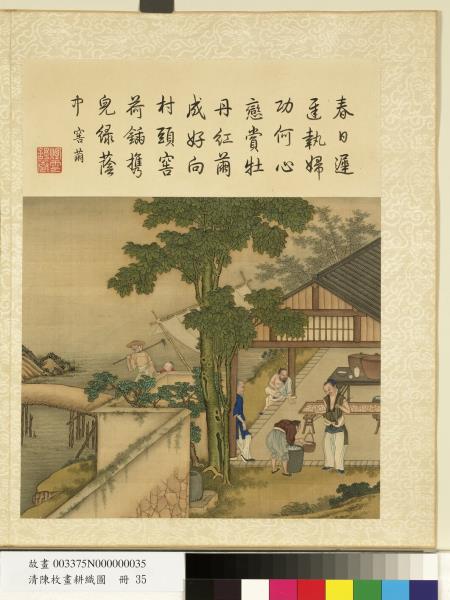 春日遲
遲執婦
功何心
戀賞牡
丹紅繭
成好向
村頭窖
荷鍤攜
兒綠蔭
中 窖繭
故畫 003375N000000035
清陳枚畫耕織圖 冊 35